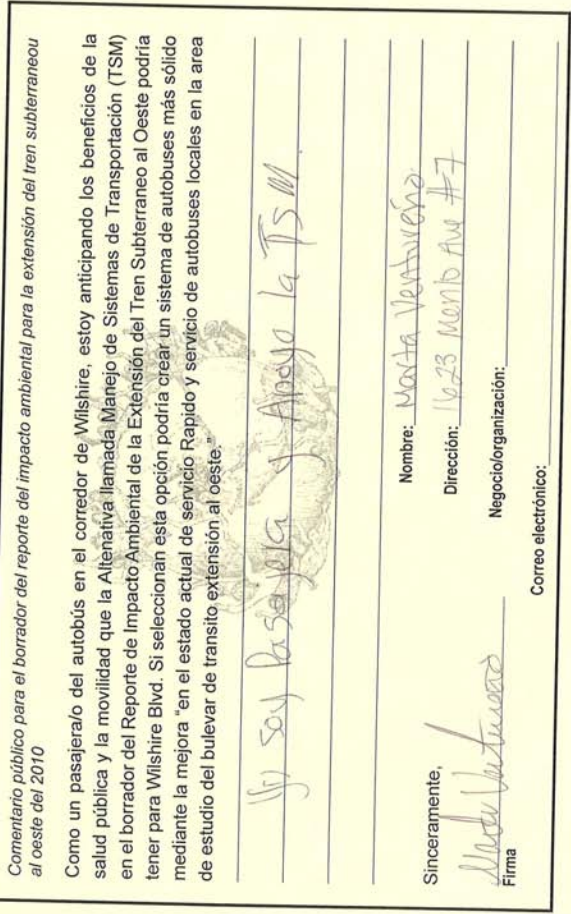 Comentario público para el borrador del reporte del impacto ambiental para la extensión del tren subterraneou
al oeste del 2010
Como un pasajera/o del autobús en el corredor de Wilshire, estoy anticipando los beneficios de la
salud pública y la movilidad que la Altenativa llamada Manejo de Sistemas de Transportación (TSM)
en el borrador del Reporte de Impacto Ambiental de la Extensión del Tren Subterraneo al Oeste podría
tener para Wilshire Blvd. Si seleccionan esta opción podría crear un sistema de autobuses más sólido
mediante la mejora "en el estado actual de servicio Rapido y servicio de autobuses locales en la area
de estudio del bulevar de transito extensión al oeste."
Yo soy Pasajera y Apoyo la TSM.
Sinceramente,
Nombre: Marta Ventureño
Dirección: 1623 Ave #7
Firma
Negocio/organización:
Correo electrónico: